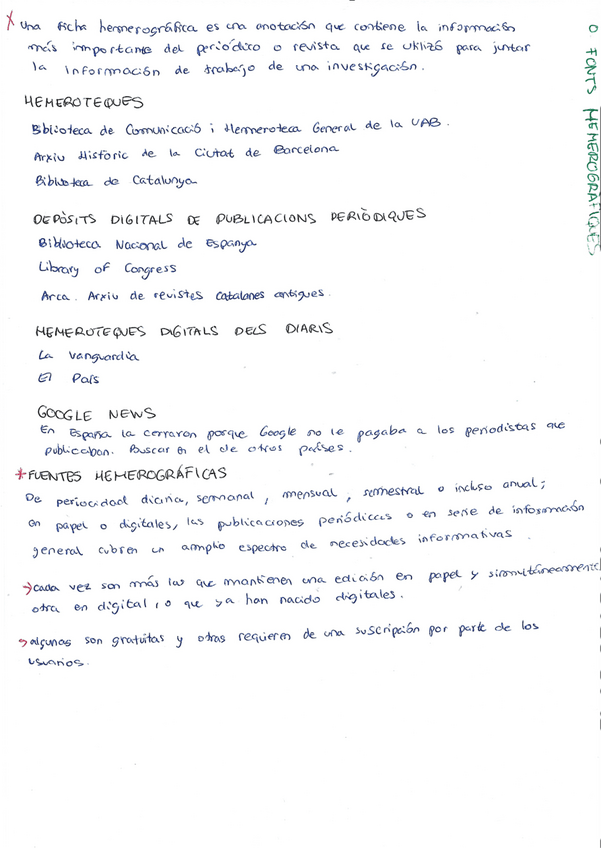 O FONTS HEMEROGRÀFIQUES
X Una ficha hemerográfica es una anotación que contiene la información
más importante del periódico o revista que se utilizó para juntar
la información de trabajo de una investigación.
HEMEROTEQUES
Biblioteca de Comunicació i Hemeroteca General de la UAB.
Arxiu Històric de la Ciutat de Barcelona
Biblioteca de Catalunya
DEPÒSITS DIGITALS DE PUBLICACIONS PERIÒDIQUES
Biblioteca Nacional de Espanya
Library of Congress
Arca. Arxiu de revistes catalanes antigues.
HEMEROTEQUES DIGITALS DELS DIARIS
La Vanguardia
El País
GOOGLE NEWS
En España la cerraron porque Google no le pagaba a los periodistas que
publicaban. Buscar en el de otros países.
* FUENTES HEMEROGRÁFICAS
De periocidad diaria, semanal, mensual, semestral o incluso anual;
en papel o digitales, las publicaciones periódicas o en serie de información
general cubren un amplio espectro de necesidades informativas.
→ cada vez son más las que mantienen una edición en papel y simultáneament
otra en digital, o que ya han nacido digitales.
→ algunas son gratuitas y otras requieren de una suscripción por parte de los
usuarios.